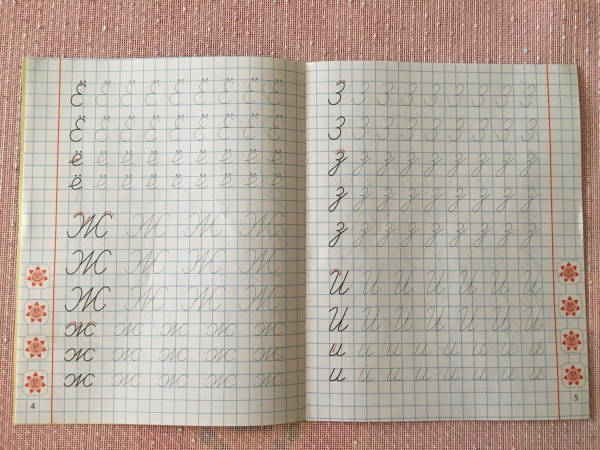 Ё Ё Ё Ё Ё Ё Ё Ё Ё
Ё Ё Ё Ё Ё Ё Ё Ё Ё
ё ё ё ё ё ё ё ё ё
ё ё ё ё ё ё ё ё ё
Ж Ж Ж Ж
Ж Ж Ж Ж
Ж Ж Ж Ж
ж ж ж ж ж
ж ж ж ж ж
ж ж ж ж ж
4
З З З З З З З З З
З З З З З З З З З
з з з з з з з з з
з з з з з з з з з
з з з з з з з з з
И И И И И И И
И И И И И И И
и и и и и и и и
и и и и и и и и
5